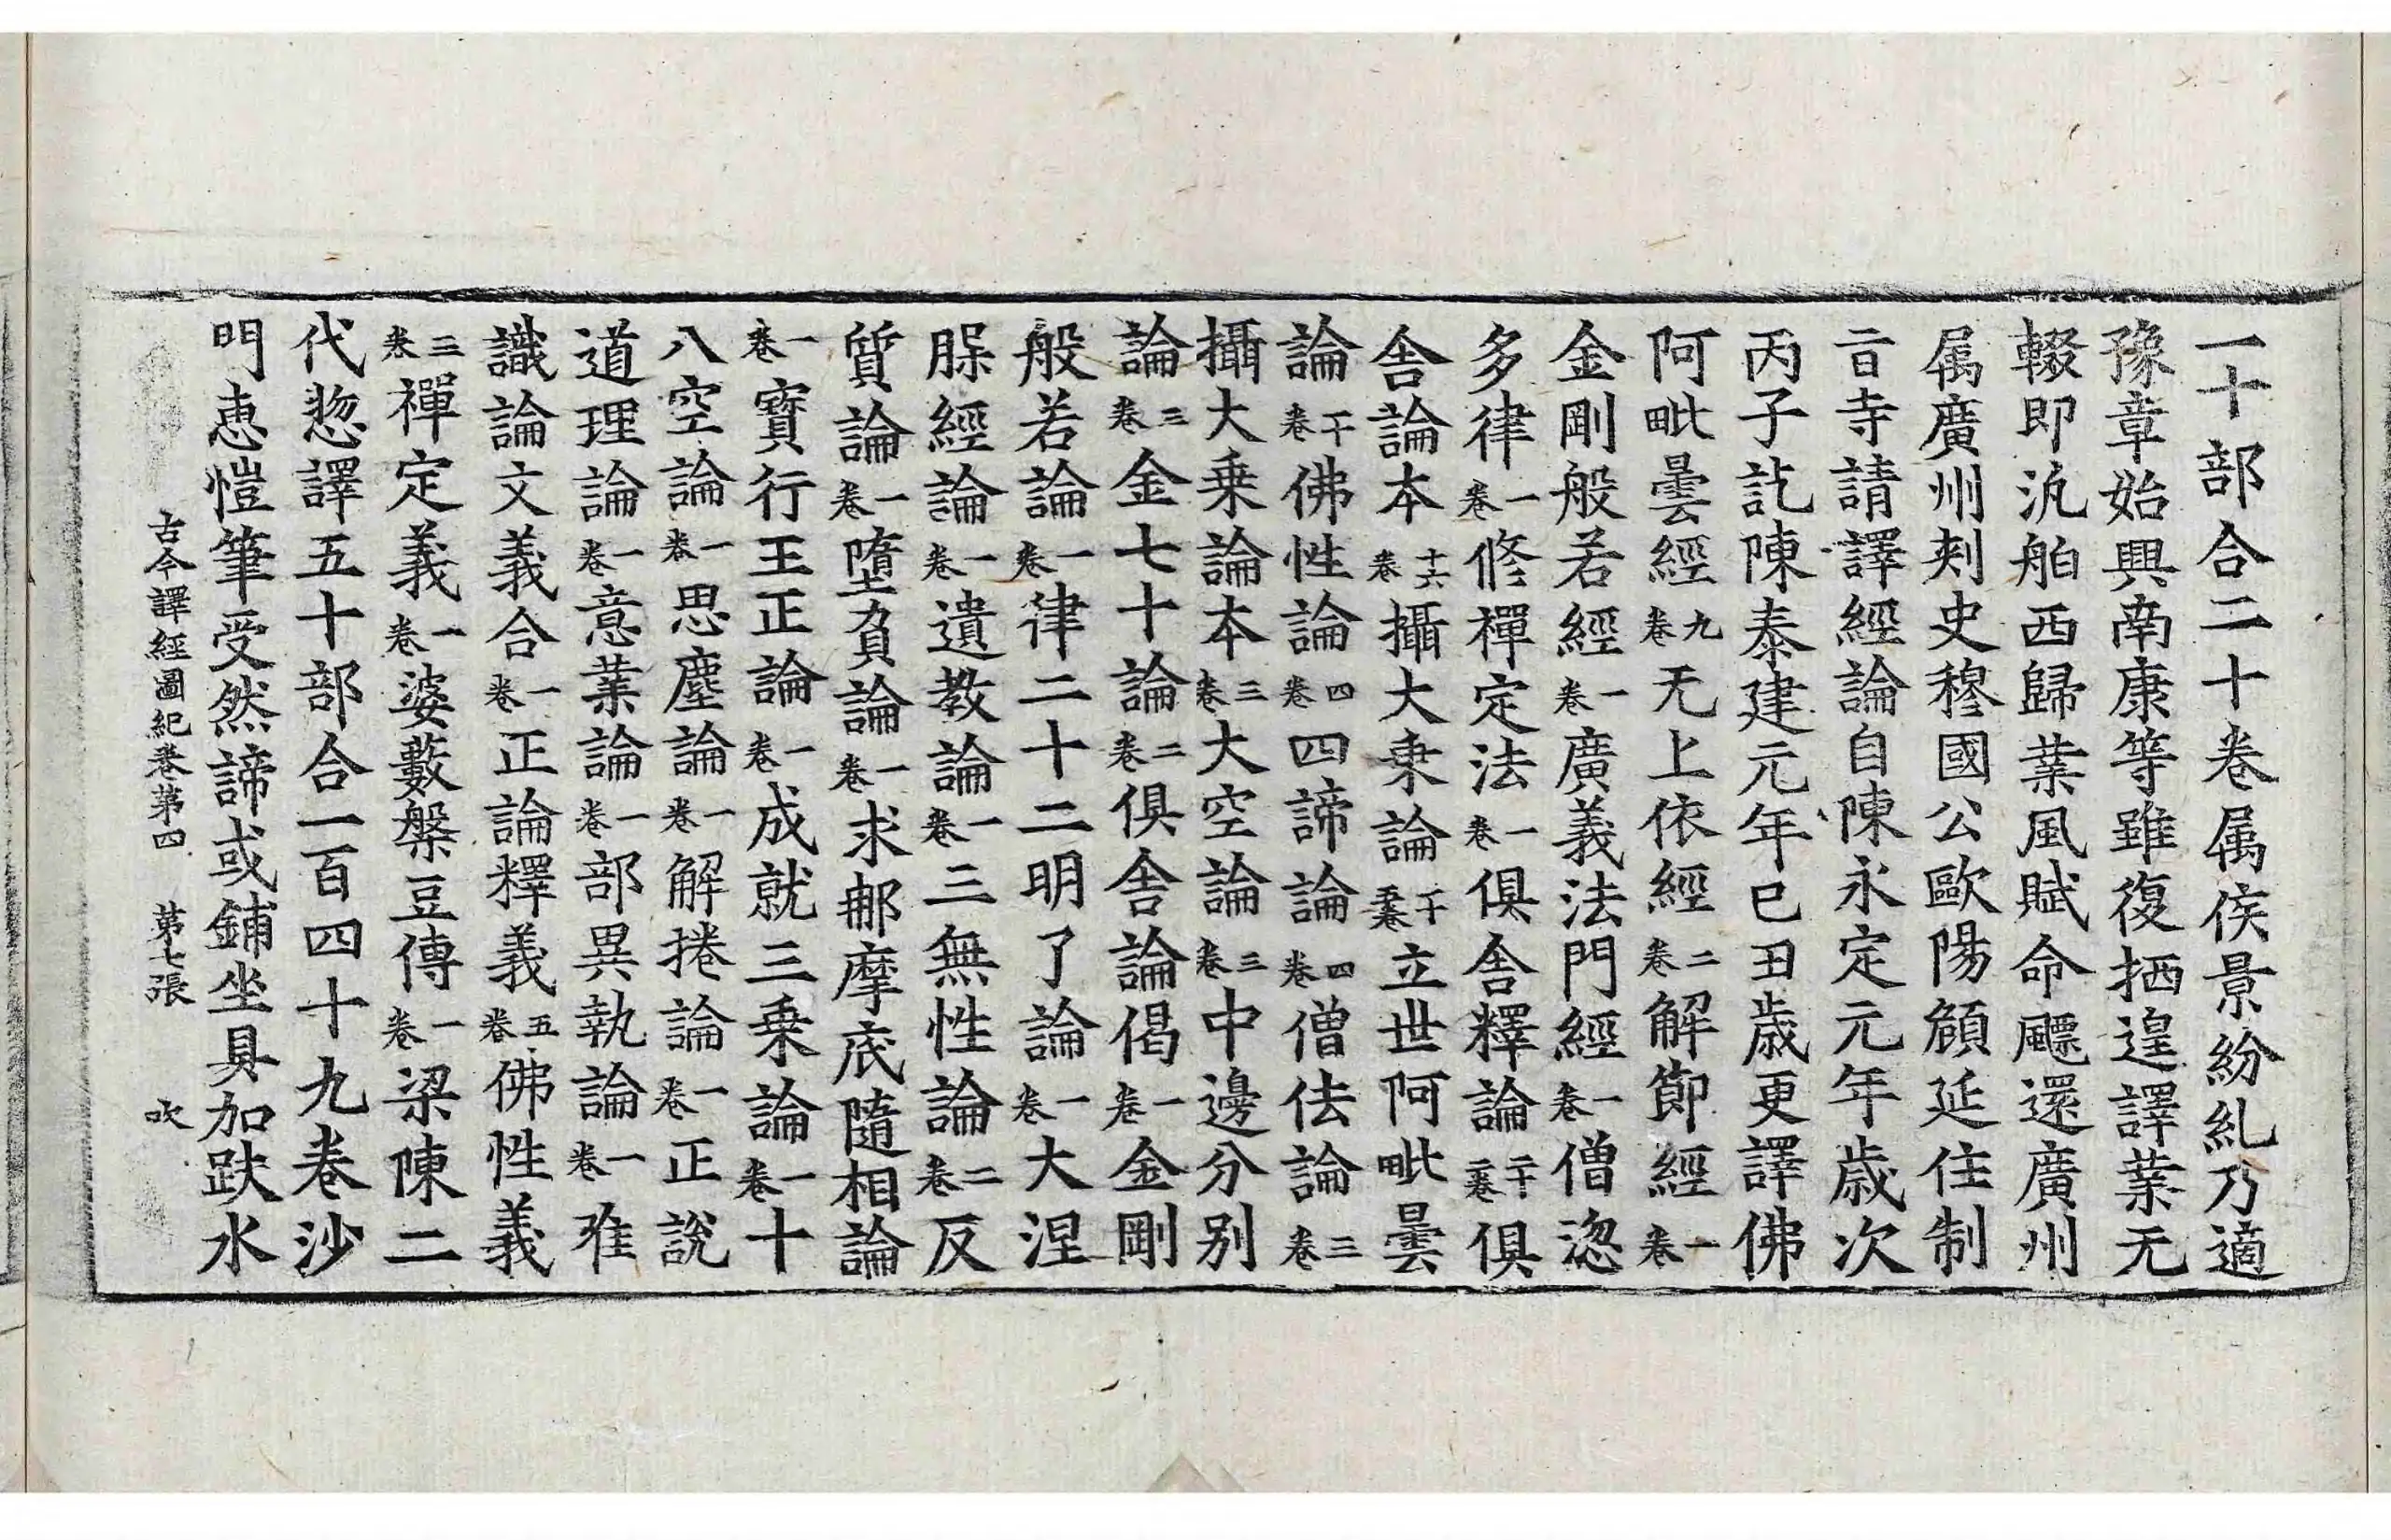 一十部合二十卷属侯景紛糺乃適
豫章始興南康等雖復栖遑譯業无
輟即汎舶西歸業風賦命飃還廣州
属廣州刾史穆國公歐陽頠延住制
旨寺請譯經論自陳永定元年歳次
丙子訖陳泰建元年巳丑歳更譯佛
阿毗曇經九卷无上依經二卷解節經一卷
金剛般若經一卷廣義法門經一卷僧澁
多律一卷修禪定法一卷俱舍釋論二十二卷俱
舍論本十六卷攝大乗論十五卷立世阿毗曇
論十卷佛性論四卷四諦論四卷僧佉論三卷
攝大乗論本三卷大空論三卷中邊分别
論三卷金七十論二卷俱舍論偈一卷金剛
般若論一卷律二十二明了論一卷大涅
腂經論一卷遺教論一卷三無性論二卷反
質論一卷墮負論一卷求郍摩底隨相論
一卷寳行王正論一卷成就三乗論一卷十
八空論一卷思塵論一卷解捲論一卷正說
道理論一卷意業論一卷部異執論一卷唯
識論文義合一卷正論釋義五卷佛性義
三卷禪定義一卷婆藪槃豆傳一卷梁陳二
代惣譯五十部合一百四十九卷沙
門恵愷筆受然諦或鋪坐具加趺水
古今譯經圖紀卷第四 第七張 吹